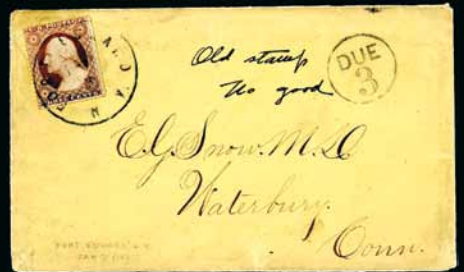 Old stamp
No good
DUE
3
E.G. Snow. M.D
Waterbury.
Conn.